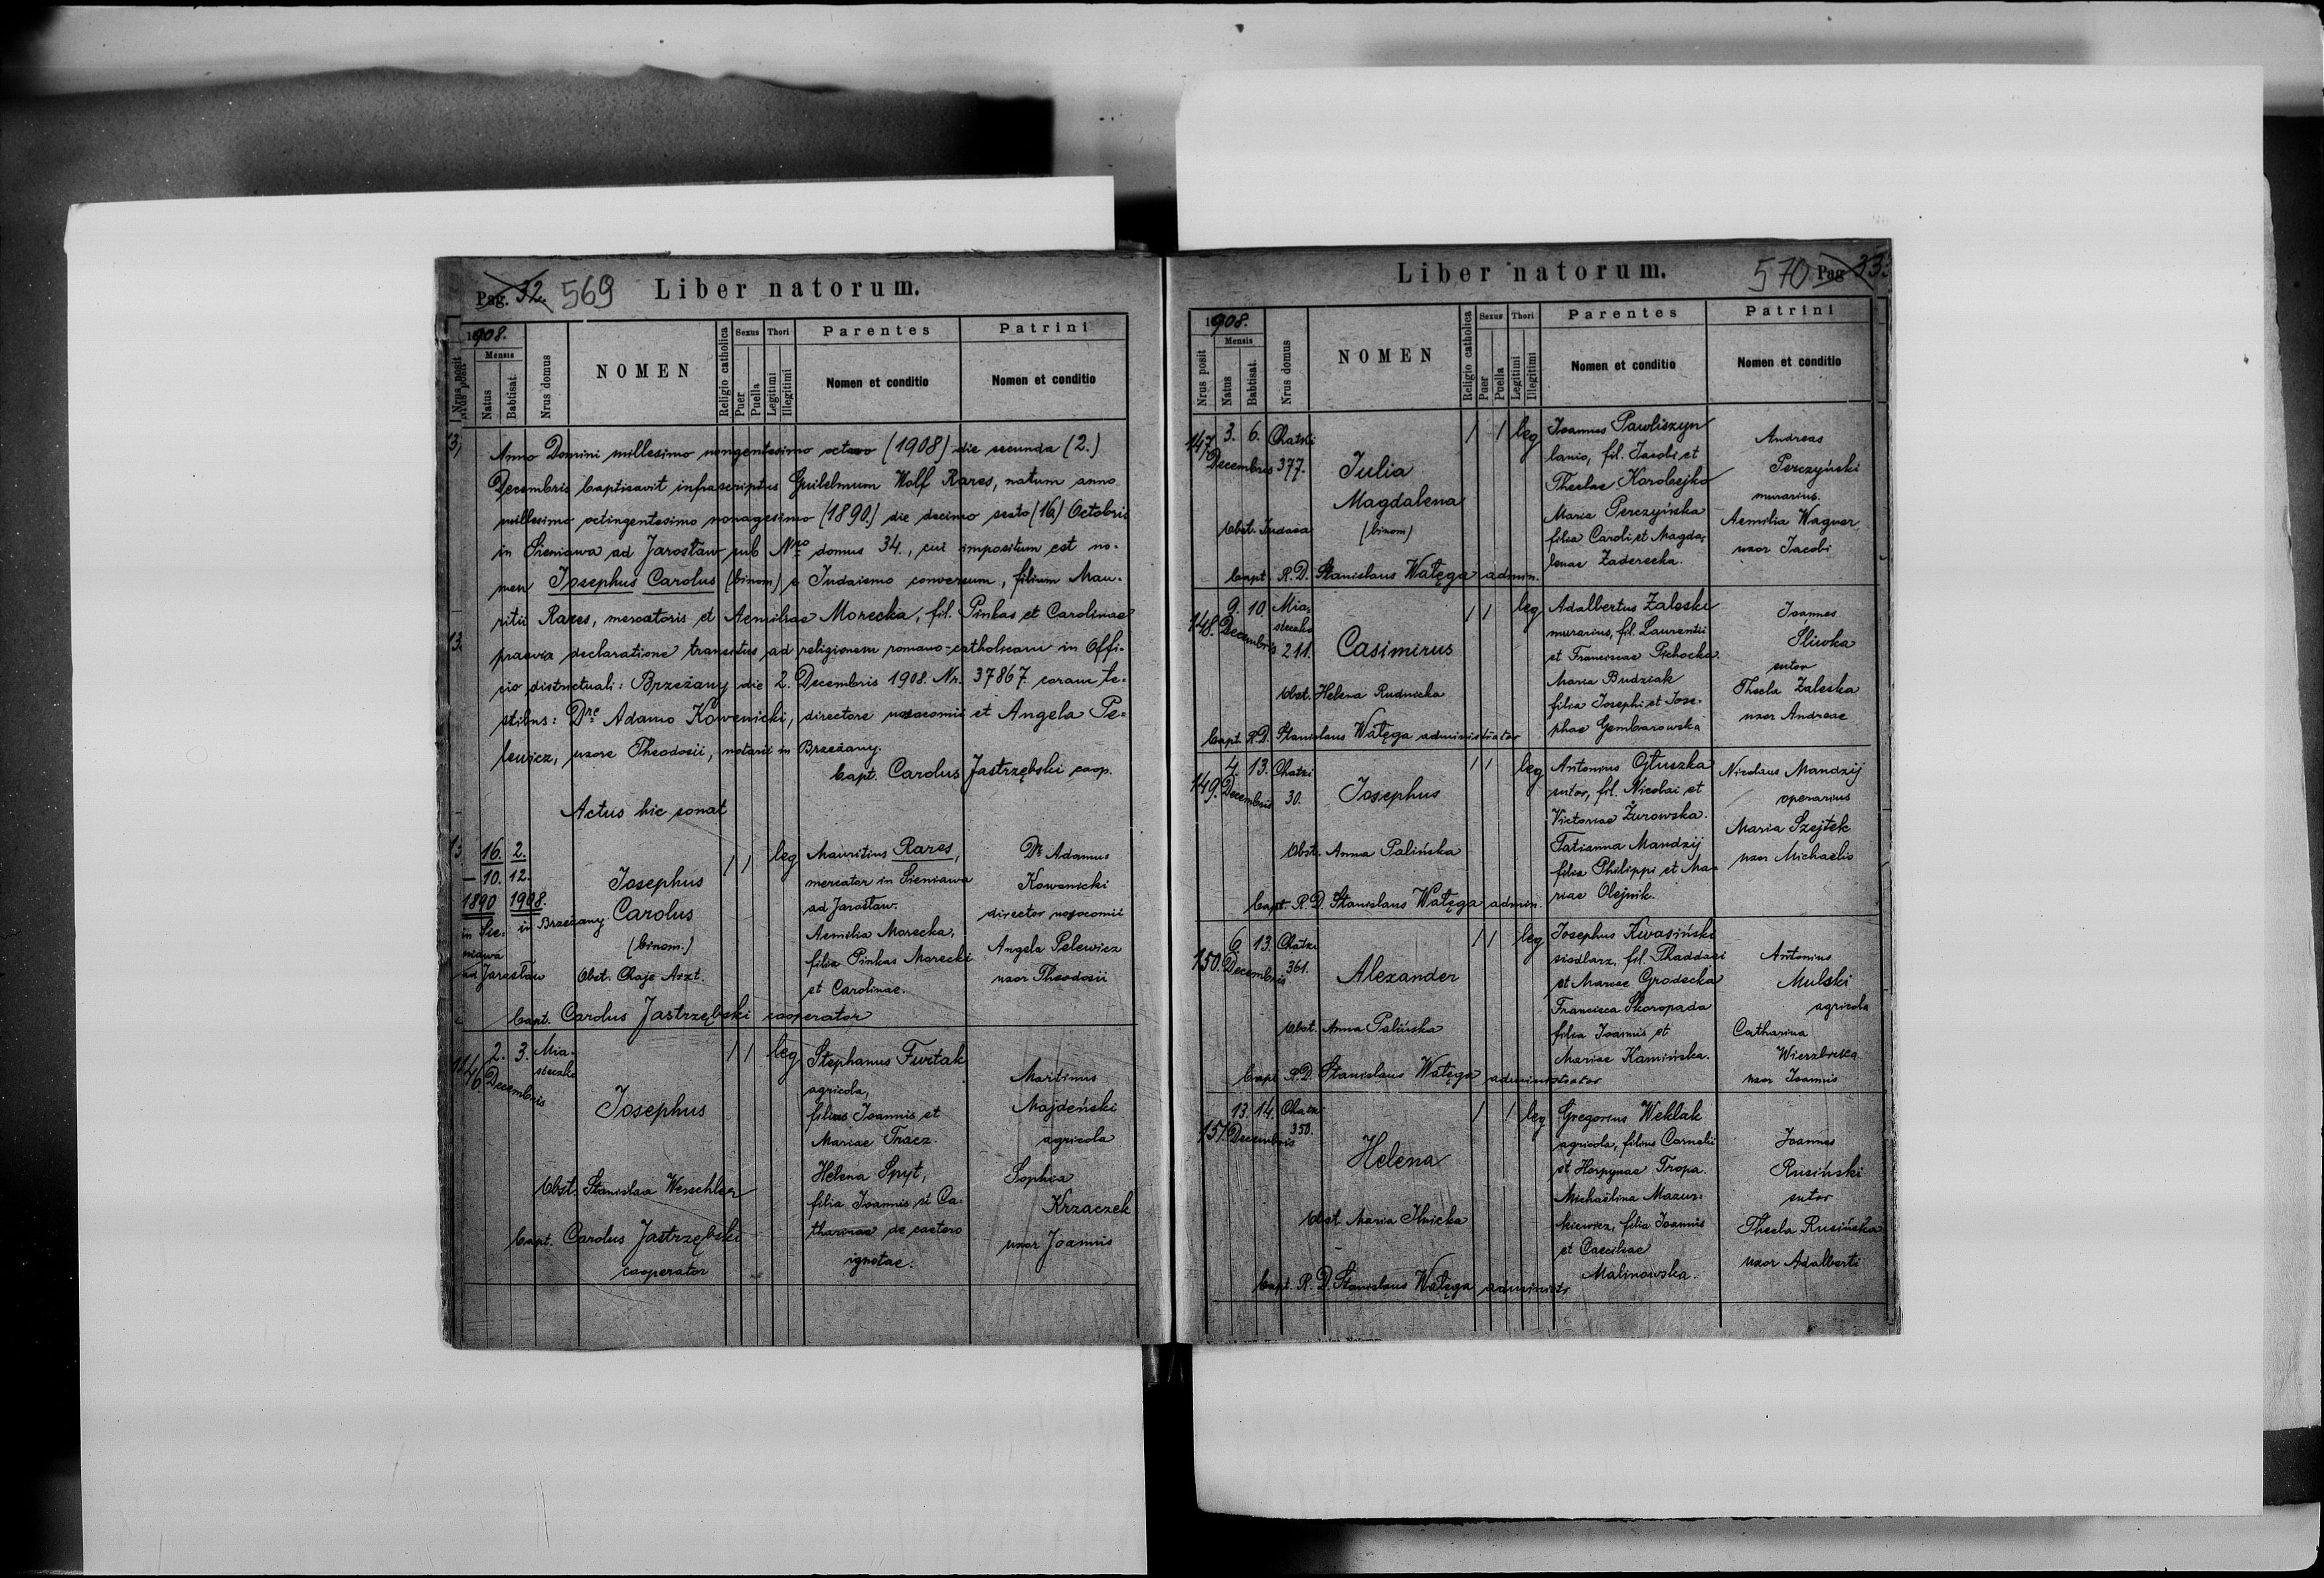 Pag. 32. 569 Liber natorum.
1908.
Nrus posit
Mensis
Natus
Babtisat.
Nrus domus
NOMEN
Religio catholica
Sexus
Puer
Puella
Thori
Legitimi
Illegitimi
Parentes
Nomen et conditio
Patrini
Nomen et conditio
Anno Domini millesimo nongentesimo octavo (1908) die secunda (2.)
Decembris baptisavit infrascriptus Guilelmum Wolf Rares, natum anno
millesimo octingentesimo nonagesimo (1890.) die decimo sexto (16) Octobris
in Sieniawa ad Jarosław sub Nro domus 34., cui impositum est no-
men Josephus Carolus (binom) e Judaismo conversum, filium Mau-
ritii Rares, mercatoris et Aemiliae Morecka, fil. Pinkas et Carolinae
praevia declaratione transitus ad religionem romano-catholicam in Offi-
cio districtuali: Brzeżany die 2. Decembris 1908. Nr. 37867. coram te-
stibus: Dre Adamo Kowenicki, directore nosocomii et Angela Pe-
lewicz, uxore Theodosii, notarii in Brzeżany.
bapt. Carolus Jastrzębski coop.
Actus hic sonat
16. 2.
10. 12.
1890 1908.
in Sie- in Brzeżany
niawa
ad Jarosław
Josephus
Carolus
(binom.)
Obst. Chaje Arzt.
leg
Mauritius Rares,
mercator in Sieniawa
ad Jarosław.
Aemilia Morecka,
filia Pinkas Morecki
et Carolinae.
Dr Adamus
Kowenicki
director nosocomii
Angela Pelewicz
uxor Theodosii
bapt. Carolus Jastrzębski cooperator
146. 2. 3. Mia-
Decembris steczko
Josephus
Obst. Stanislaa Werschler
bapt. Carolus Jastrzębski
cooperator
leg
Stephanus Furtak
agricola,
filius Joannis et
Mariae Tracz.
Helena Spyt,
filia Joannis et Ca-
tharinae de caetero
ignotae.
Martinus
Majdeński
agricola
Sophia
Krzaczek
uxor Joannis
Liber natorum. 570 Pag 33.
1908.
Nrus posit
Mensis
Natus
Babtisat.
Nrus domus
NOMEN
Religio catholica
Sexus
Puer
Puella
Thori
Legitimi
Illegitimi
Parentes
Nomen et conditio
Patrini
Nomen et conditio
147 3. 6. Chatki
Decembris 377.
Julia
Magdalena
(binom)
Obst. Judaea
leg
Joannes Pawliszyn
lanio, fil. Jacobi et
Theclae Korobejko
Maria Perczyńska
filia Caroli et Magda-
lenae Zaderecka.
Andreas
Perczyński
murarius.
Aemilia Wagner
uxor Jacobi
bapt. R. D. Stanislaus Wałęga admin.
148. 9. 10. Mia-
Decembris steczko
211.
Casimirus
Obst. Helena Rudnicka
leg
Adalbertus Zaleski
murarius, fil. Laurentii
et Franciscae Pchocka.
Maria Budziak
filia Josephi et Jose-
phae Gembarowska
Joannes
Sliwka
sutor
Thecla Zaleska
uxor Andreae
bapt. R. D. Stanislaus Wałęga administrator
149. 4. 13. Chatki
Decembris 30.
Josephus
Obst. Anna Palińska
leg
Antonius Ogłuszka
sutor, fil. Nicolai et
Victoriae Żurowska.
Tatianna Mandzij
filia Philippi et Ma-
riae Olejnik.
Nicolaus Mandzij
operarius
Maria Szejtek
uxor Michaelis
bapt. R. D. Stanislaus Wałęga admin.
150. 6. 13. Chatki
Decembris 361.
Alexander
Obst. Anna Palińska
leg
Josephus Kwasiński
siodlarz, fil. Thaddaei
et Mariae Grodecka
Francisca Skoropada
filia Joannis et
Mariae Kamińska.
Antonius
Mulski
agricola
Catharina
Wierzbicka
uxor Joannis
bapt R. D. Stanislaus Wałęga administrator
151. 13. 14. Chatki
Decembris 350.
Helena
Obst Maria Ilnicka
leg
Gregorius Weklak
agricola, filius Cornelii
et Horpynae Tropa.
Michaëlina Mazur-
kiewicz, filia Joannis
et Caeciliae
Malinowska.
Joannes
Rusiński
sutor
Thecla Rusińska
uxor Adalberti
bapt. R. D. Stanislaus Wałęga administr